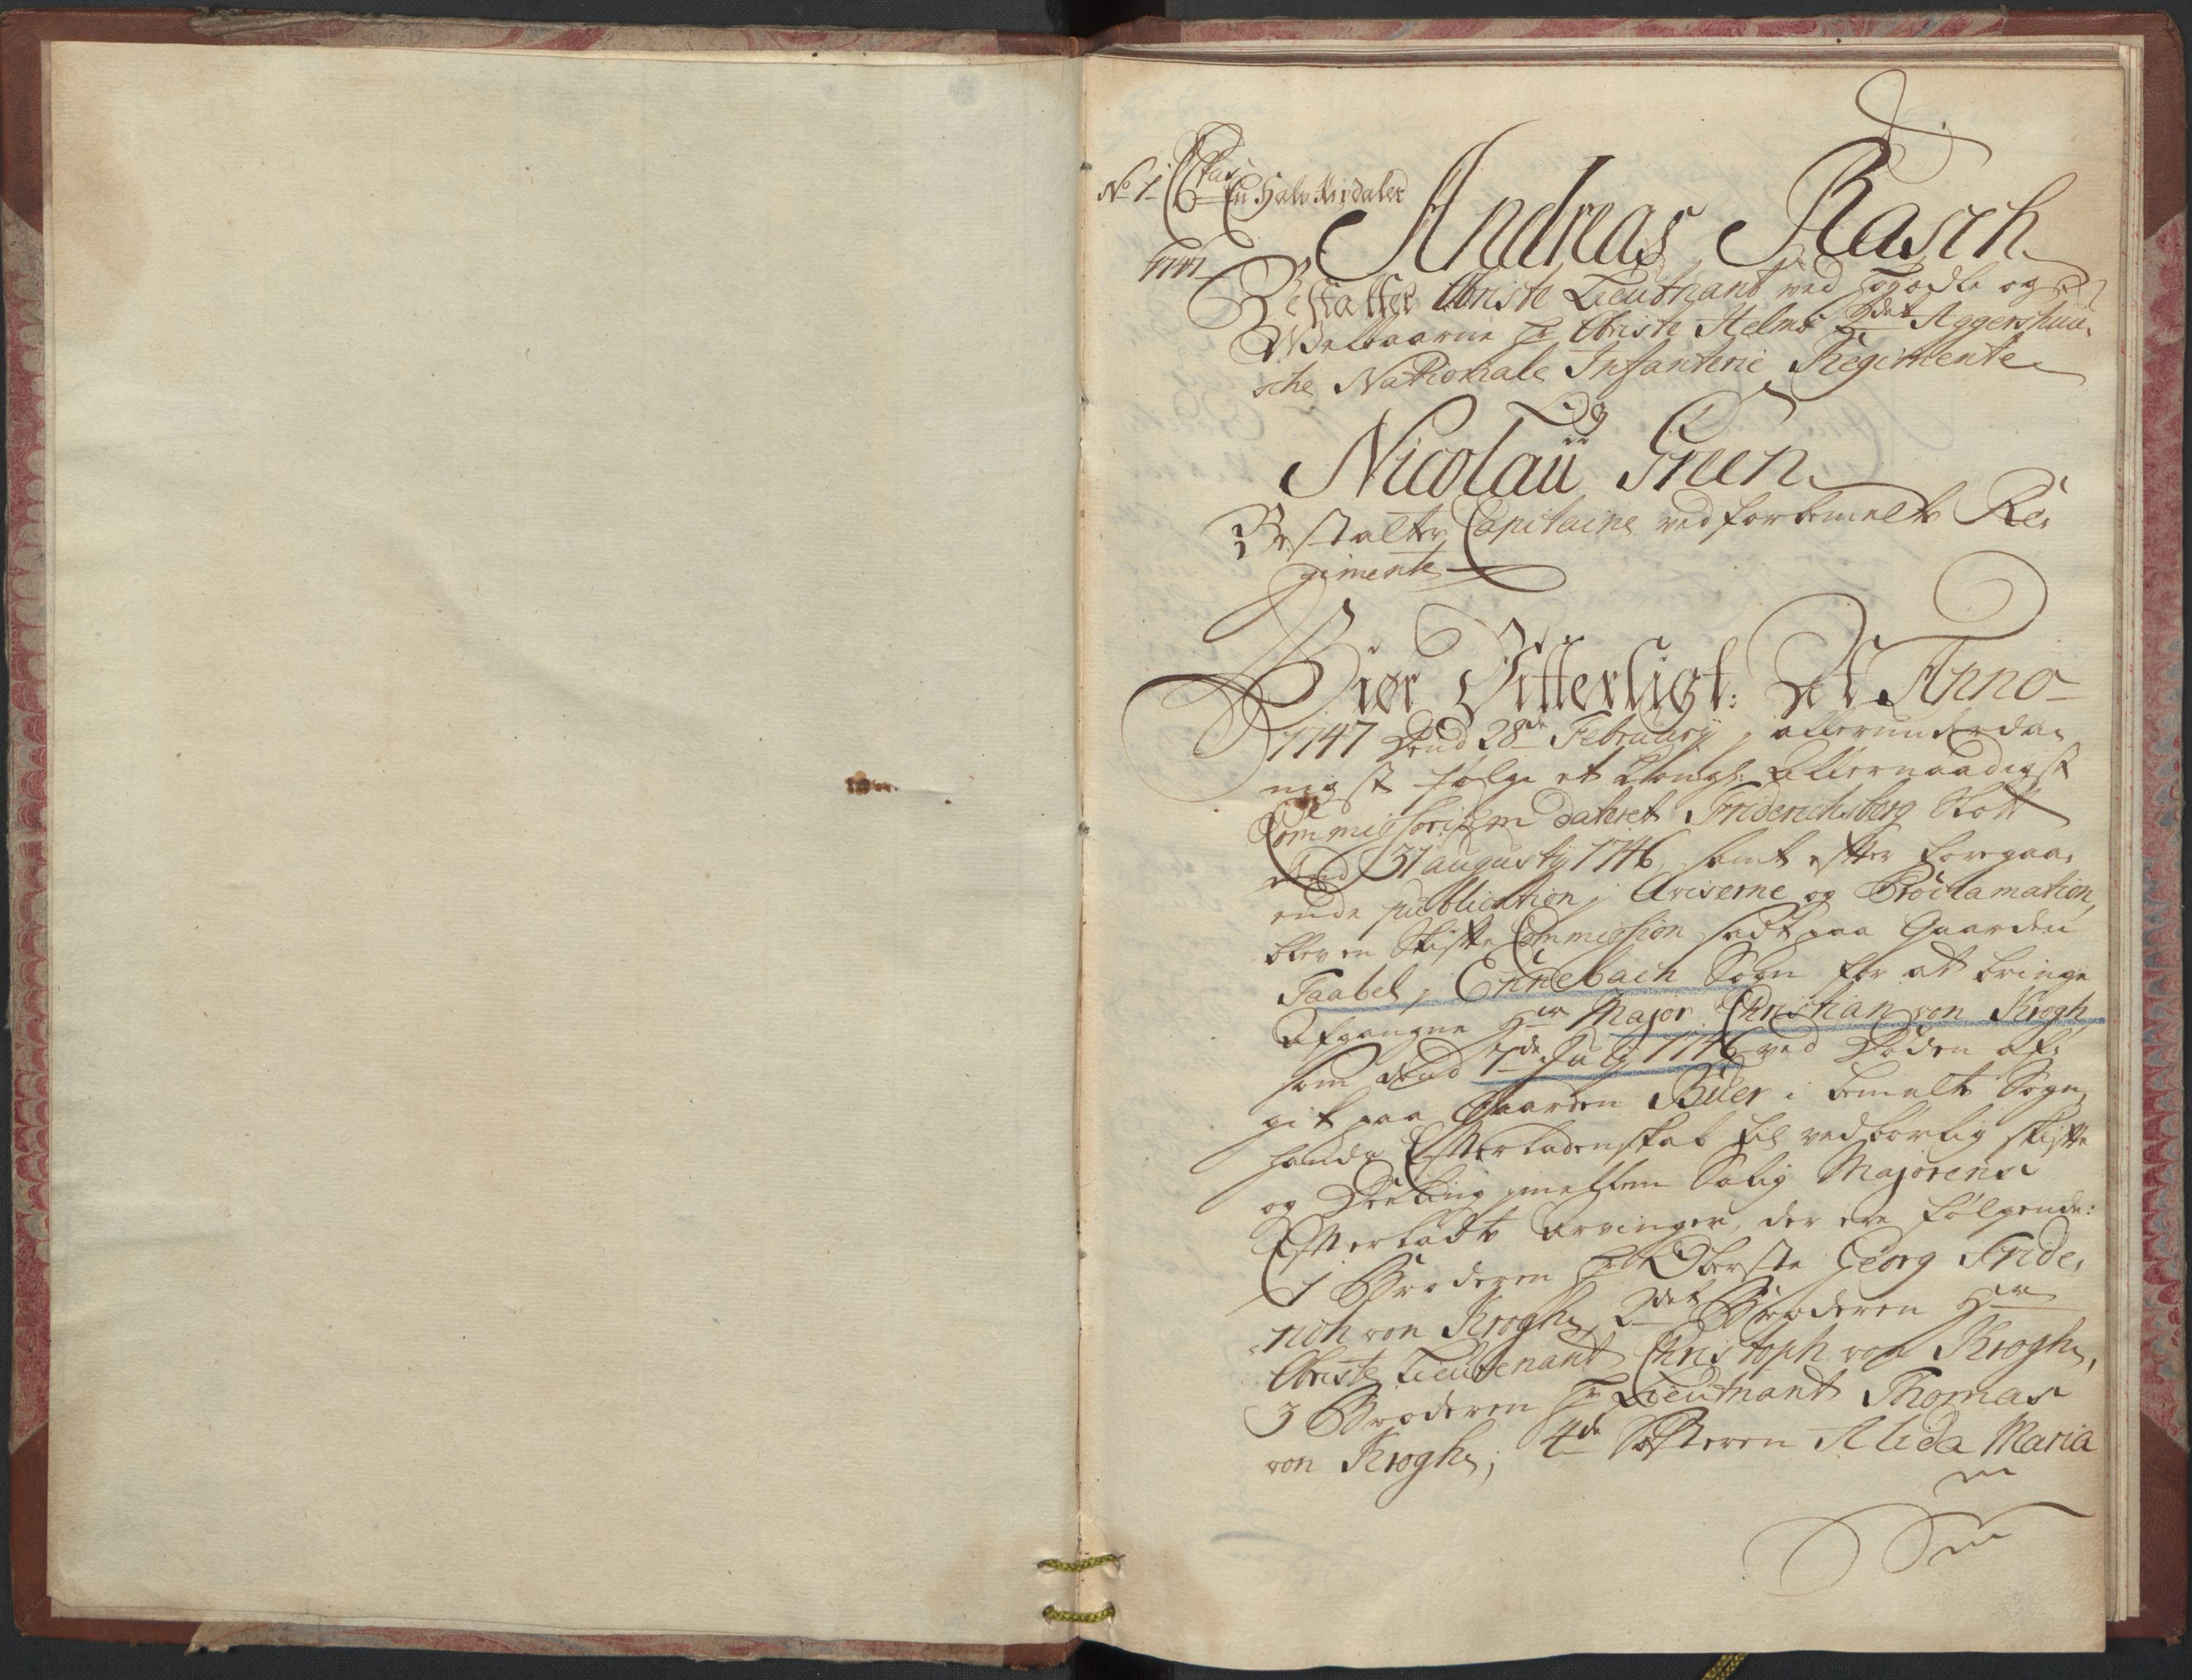 No 1.
En Halv Rixdaler
1747
Andreas Rasch
Bestalter Obriste Lieutnant ved Høyædle og
Welbaarne Hr Obriste Helms 2det Aggershuu,
sche Nationale Infanterie Regimente
Og
Nicolaii Green
Bestalter Capitaine ved forbemelte Re,
gimente
Giør Vitterligt: At Anno
1747 Dend 28de February, allerunderda,
nigst følge et Kongl: Allernaadigst
Commissorium dateret Friderichsberg Slott
dend 31 augusty 1746, samt efter foregaa,
ende publication i Aviserne og Proclamation,
blev en Skifte Commission sadt paa Gaarden
Taabel i Ennebach Sogn for at bringe
Afgangne Hr Major Christian von Krogh,
som dend 7de July 1746 ved Døden af,
git paa Gaarden Biler i bemelte Sogn
hands Efterladenskab til vedbørlig skifte
og Deeling imellem Salig Majorens
Efterladte Arvinger, der ere følgende:
1 Broderen Hr Oberste Georg Fride,
rich von Krogh, 2det Broderen Hr
Obriste Lieutenant Christoph von Krogh,
3 Broderen Hr Lieutnant Thomas
von Krogh, 4de Søsteren Alida Maria